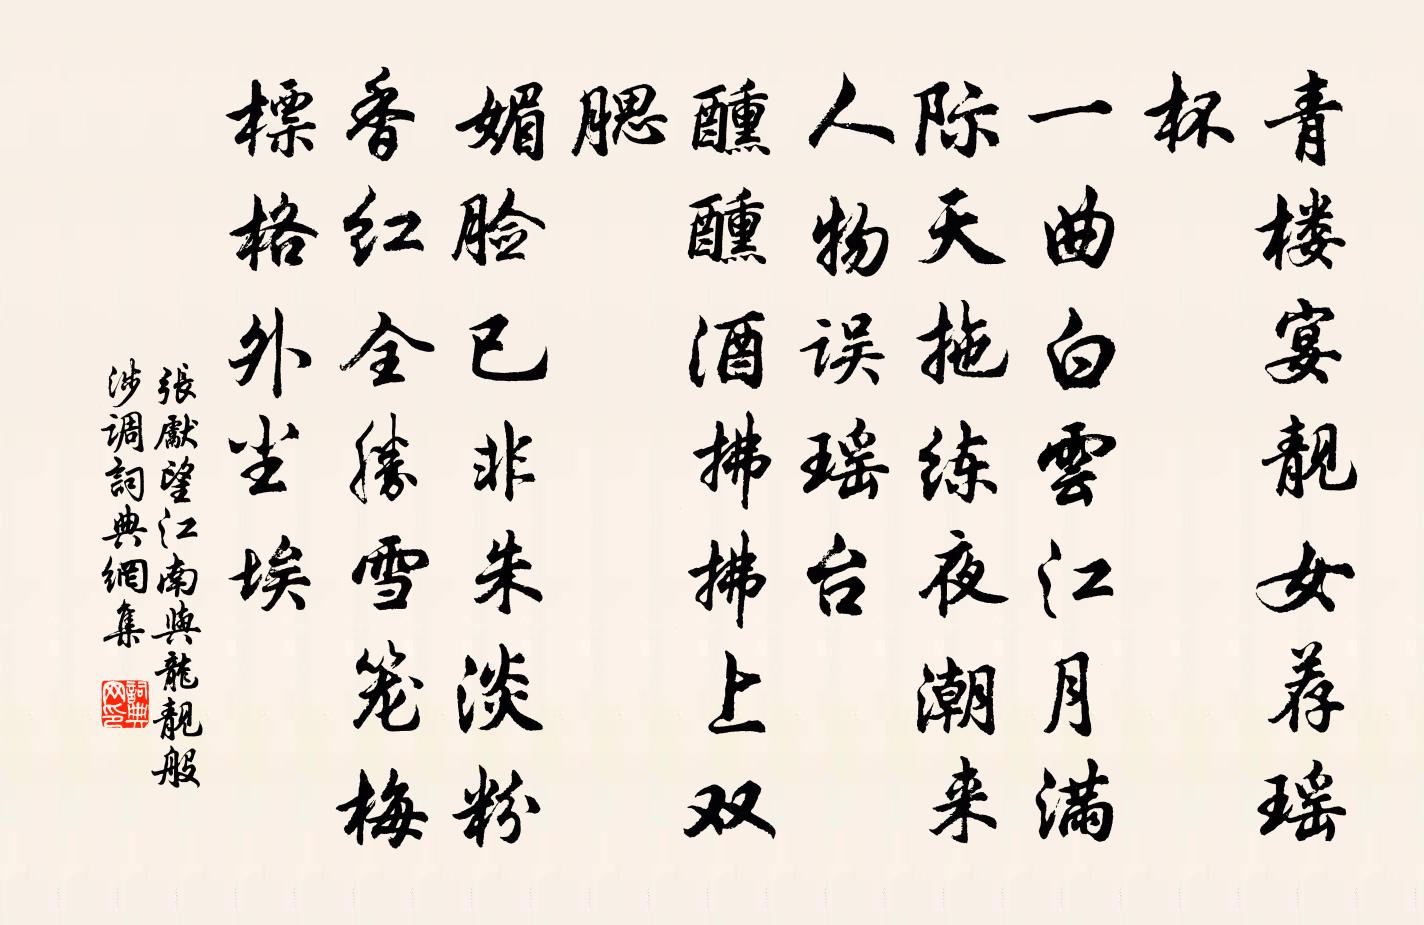 青楼宴靓女荐瑶
杯
一曲白雲江月满
际天拖练夜潮来
人物误瑶台
醺醺酒拂拂上双
腮
媚脸已非朱淡粉
香红全勝雪笼梅
標格外尘埃
張獻望江南與龍靚般
涉调詞典網集
詞典
网印